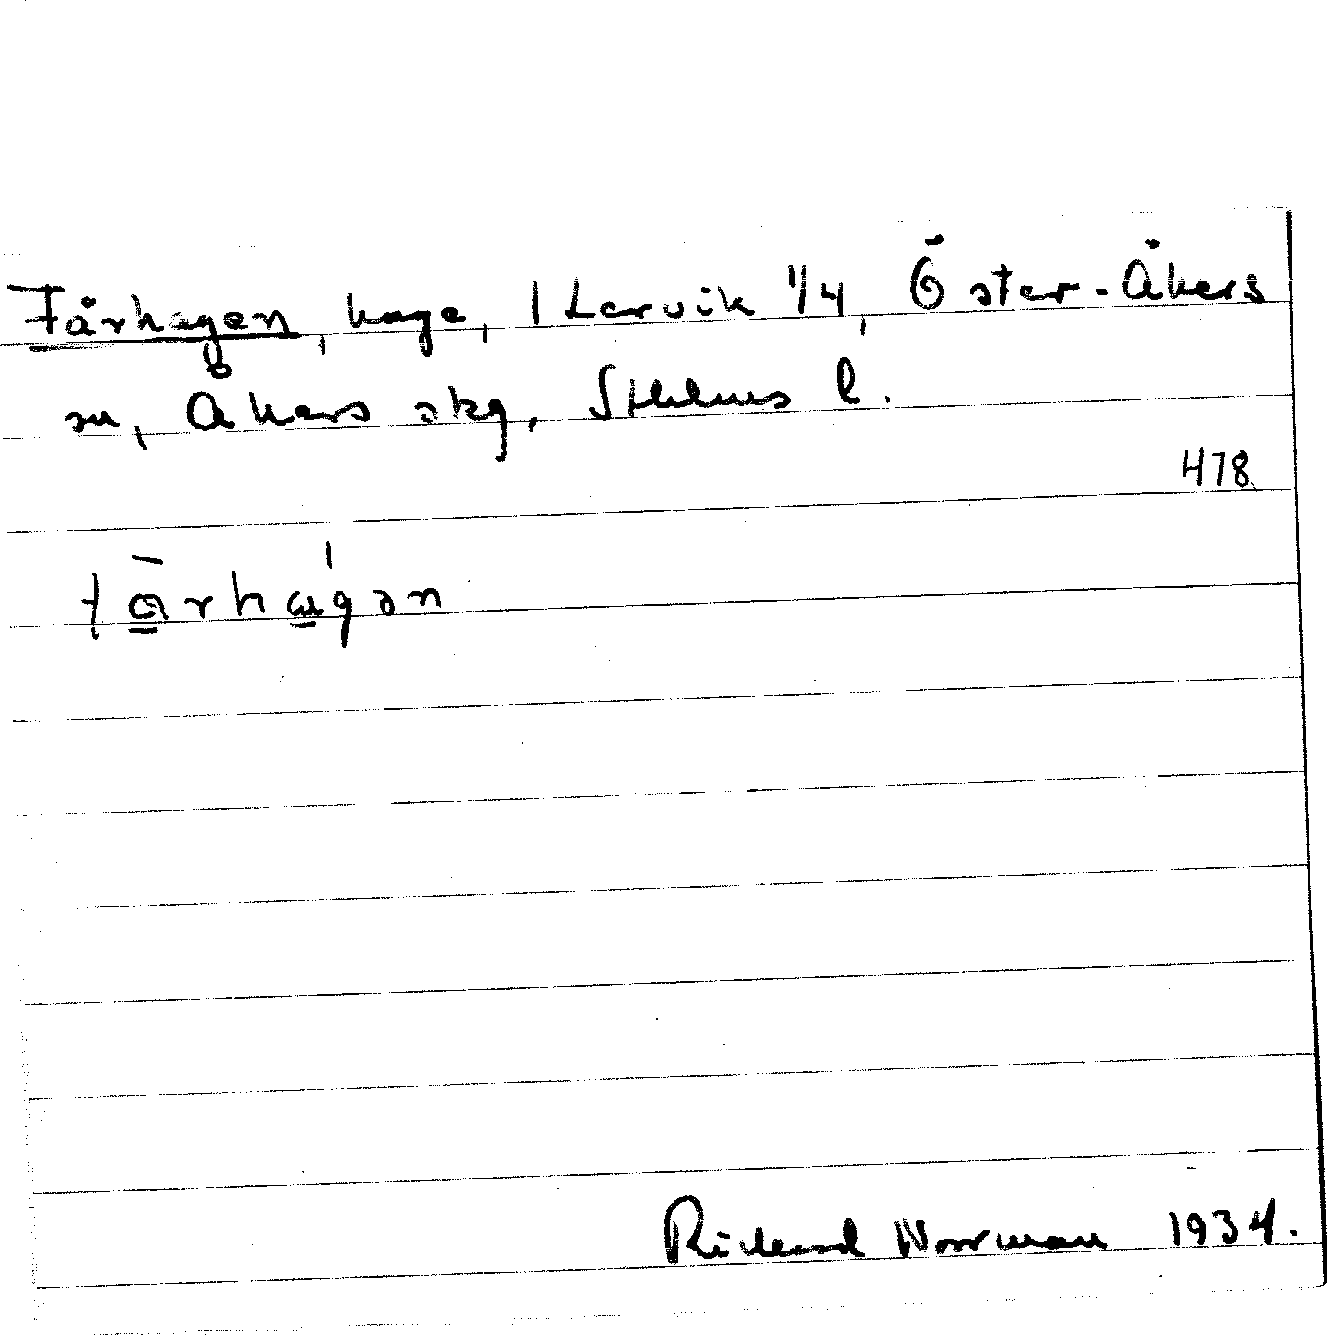 Fårhagen, hage, 1 Larvik 1/4, Öster-Åkers
sn, Åkers skg, Sthlms l.
478
fårhagən
Rickard Norrman 1934.